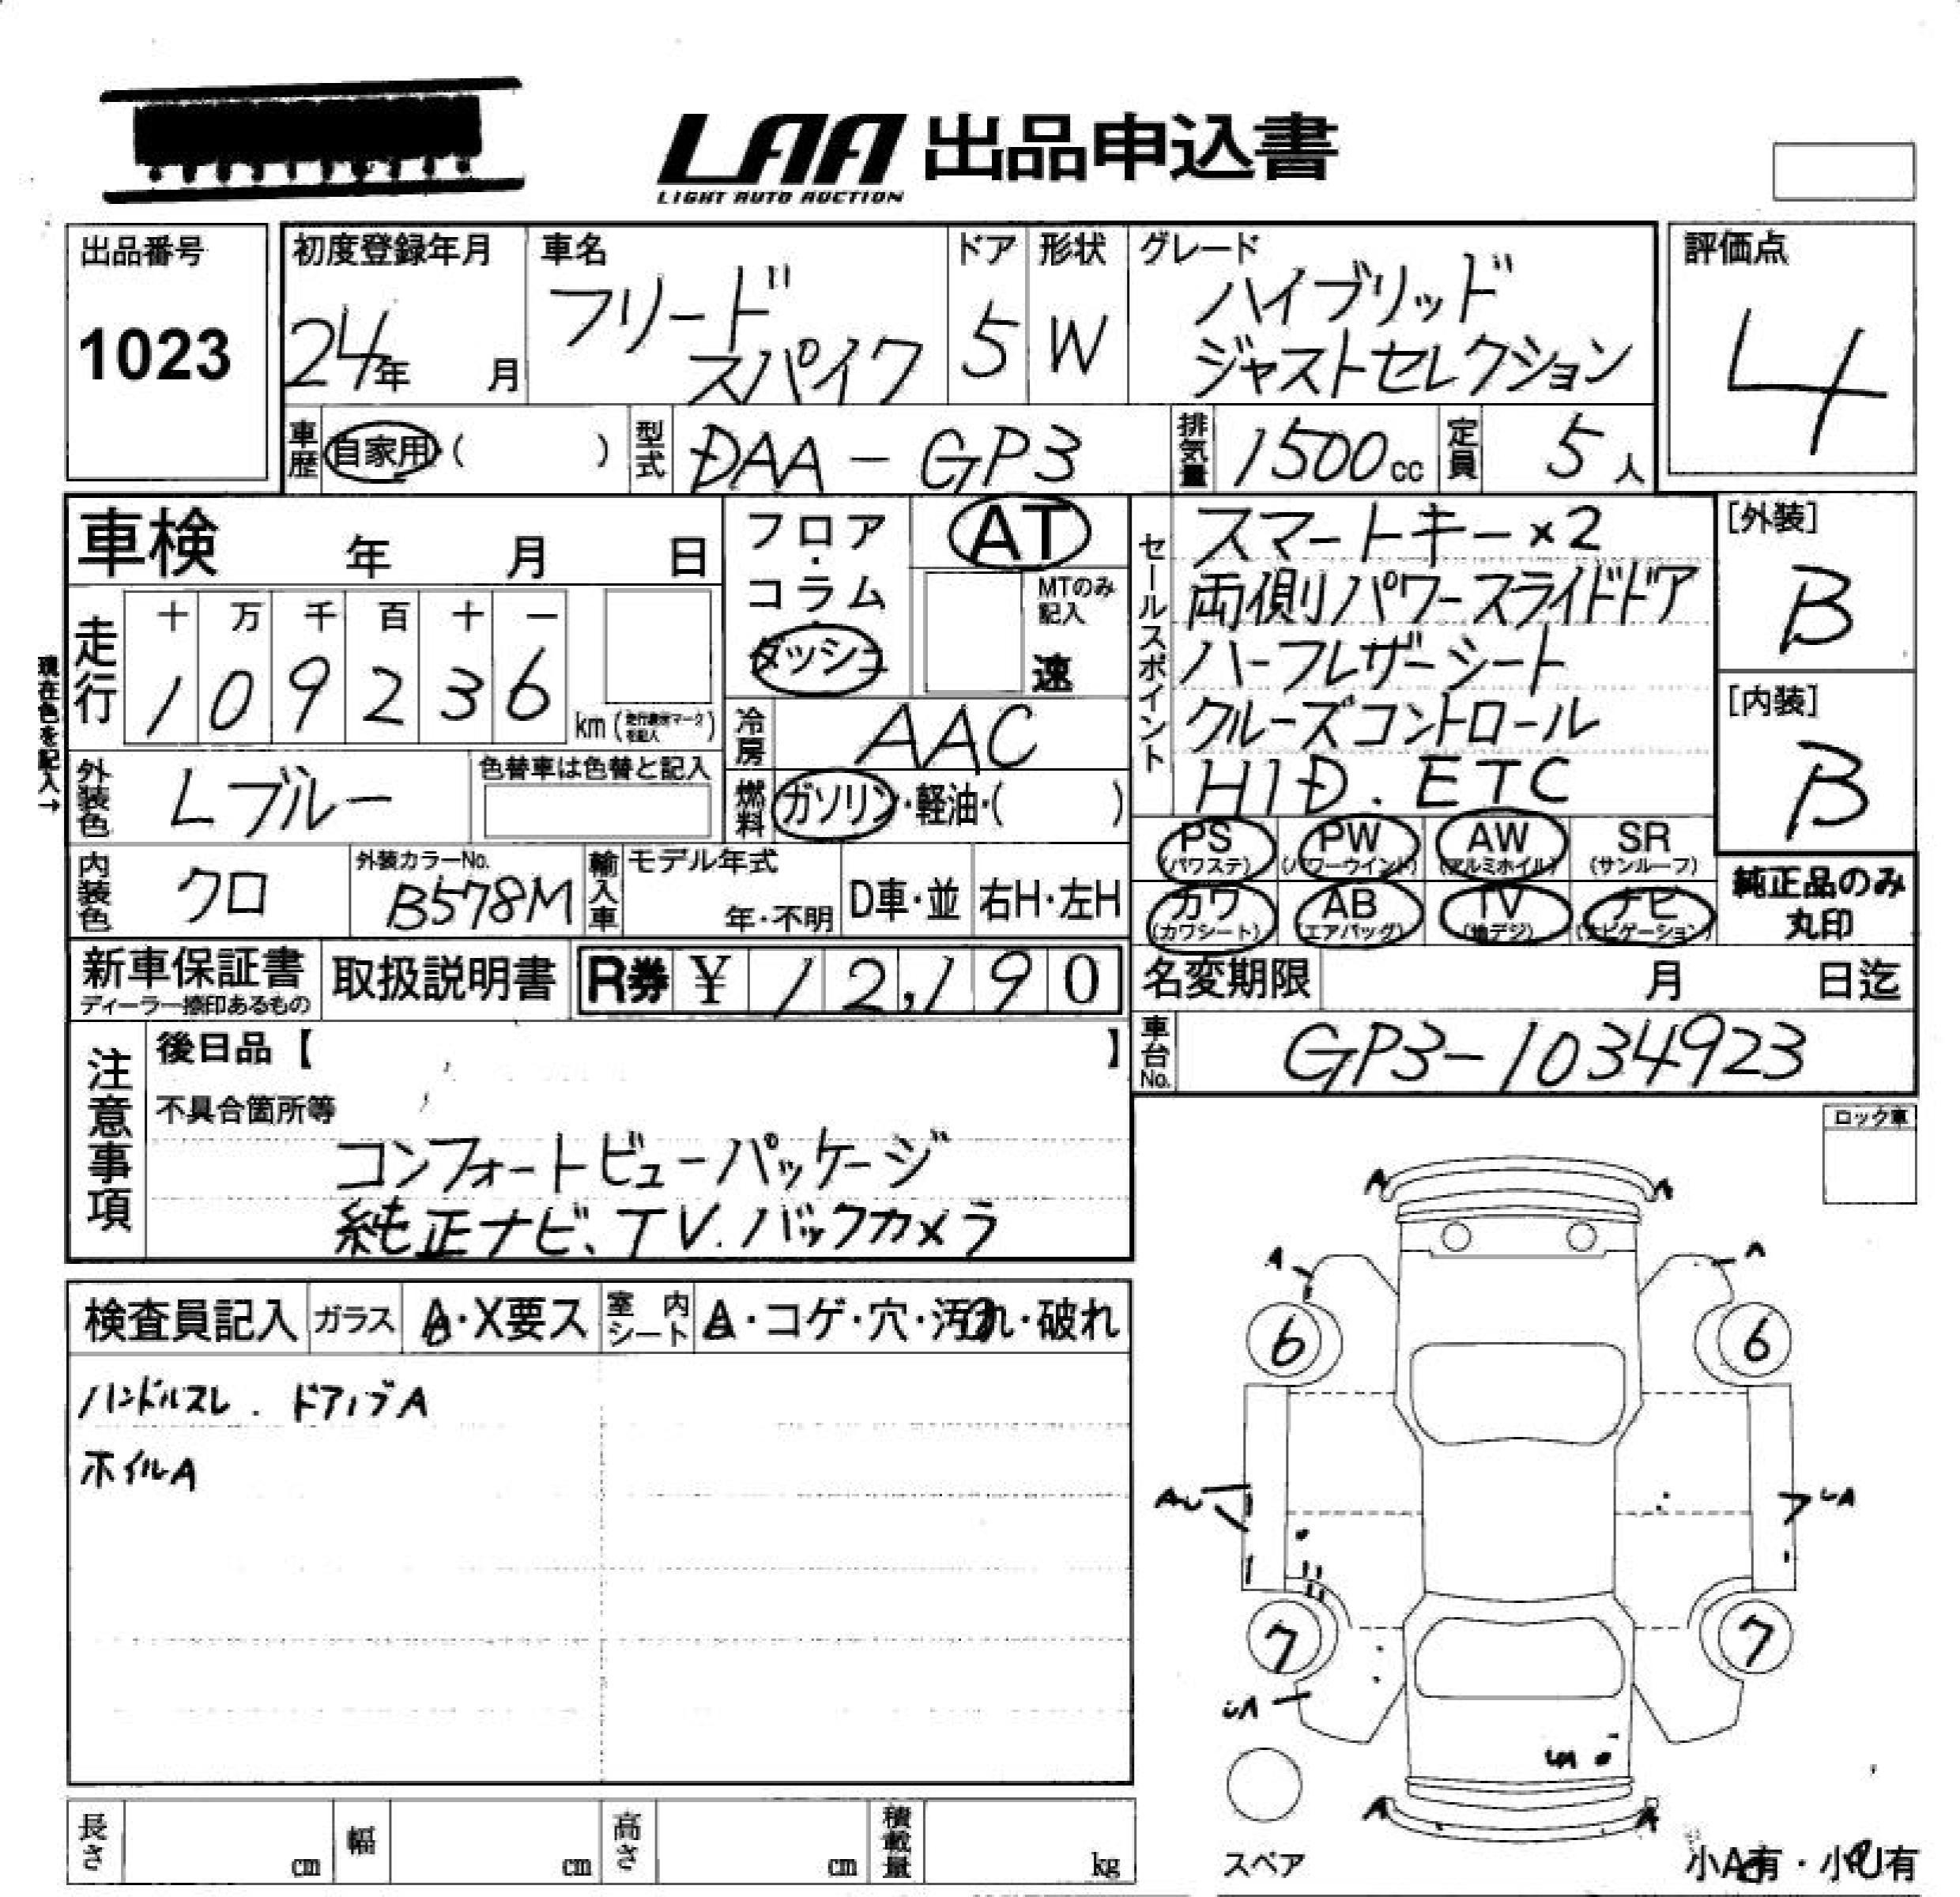 LAA 出品申込書
LIGHT AUTO AUCTION
出品番号
1023
初度登録年月
24年 月
車名
フリード
スパイク
ドア
5
形状
W
グレード
ハイブリッド
ジャストセレクション
評価点
4
車歴 自家用・( )
型式 DAA-GP3
排気量 1500cc
定員 5人
車検 年 月 日
走行
十 万 千 百 十 一
1 0 9 2 3 6
km
現在色を記入→
フロア・コラム・ダッシュ
AT
MTのみ記入
速
冷房 AAC
燃料 ガソリン・軽油・( )
外装色 Lブルー
色替車は色替と記入
内装色 クロ
外装カラーNo.
B578M
輸入車
モデル年式
年・不明
D車・並
右H・左H
セールスポイント
スマートキー×2
両側パワースライドドア
ハーフレザーシート
クルーズコントロール
HID. ETC
[外装]
B
[内装]
B
PS (パワステ)
PW (パワーウインド)
AW (アルミホイル)
SR (サンルーフ)
カワ (カワシート)
AB (エアバッグ)
TV (地デジ)
ナビ (ナビゲーション)
純正品のみ
丸印
新車保証書
ディーラー捺印あるもの
取扱説明書
R券 ¥ 12,190
名変期限 月 日迄
車台No. GP3-1034923
注意事項
後日品【 】
不具合箇所等
コンフォートビューパッケージ
純正ナビ、TV.バックカメラ
ロック車
検査員記入
ガラス
A・X要ス
室内シート
A・コゲ・穴・汚れ・破れ
ハンドルスレ . ドアノブA
ホイルA
A A
A A
6 6
AU UA
7 7
UA
A A
スペア
小A有・小U有
長さ cm
幅 cm
高さ cm
積載量 kg